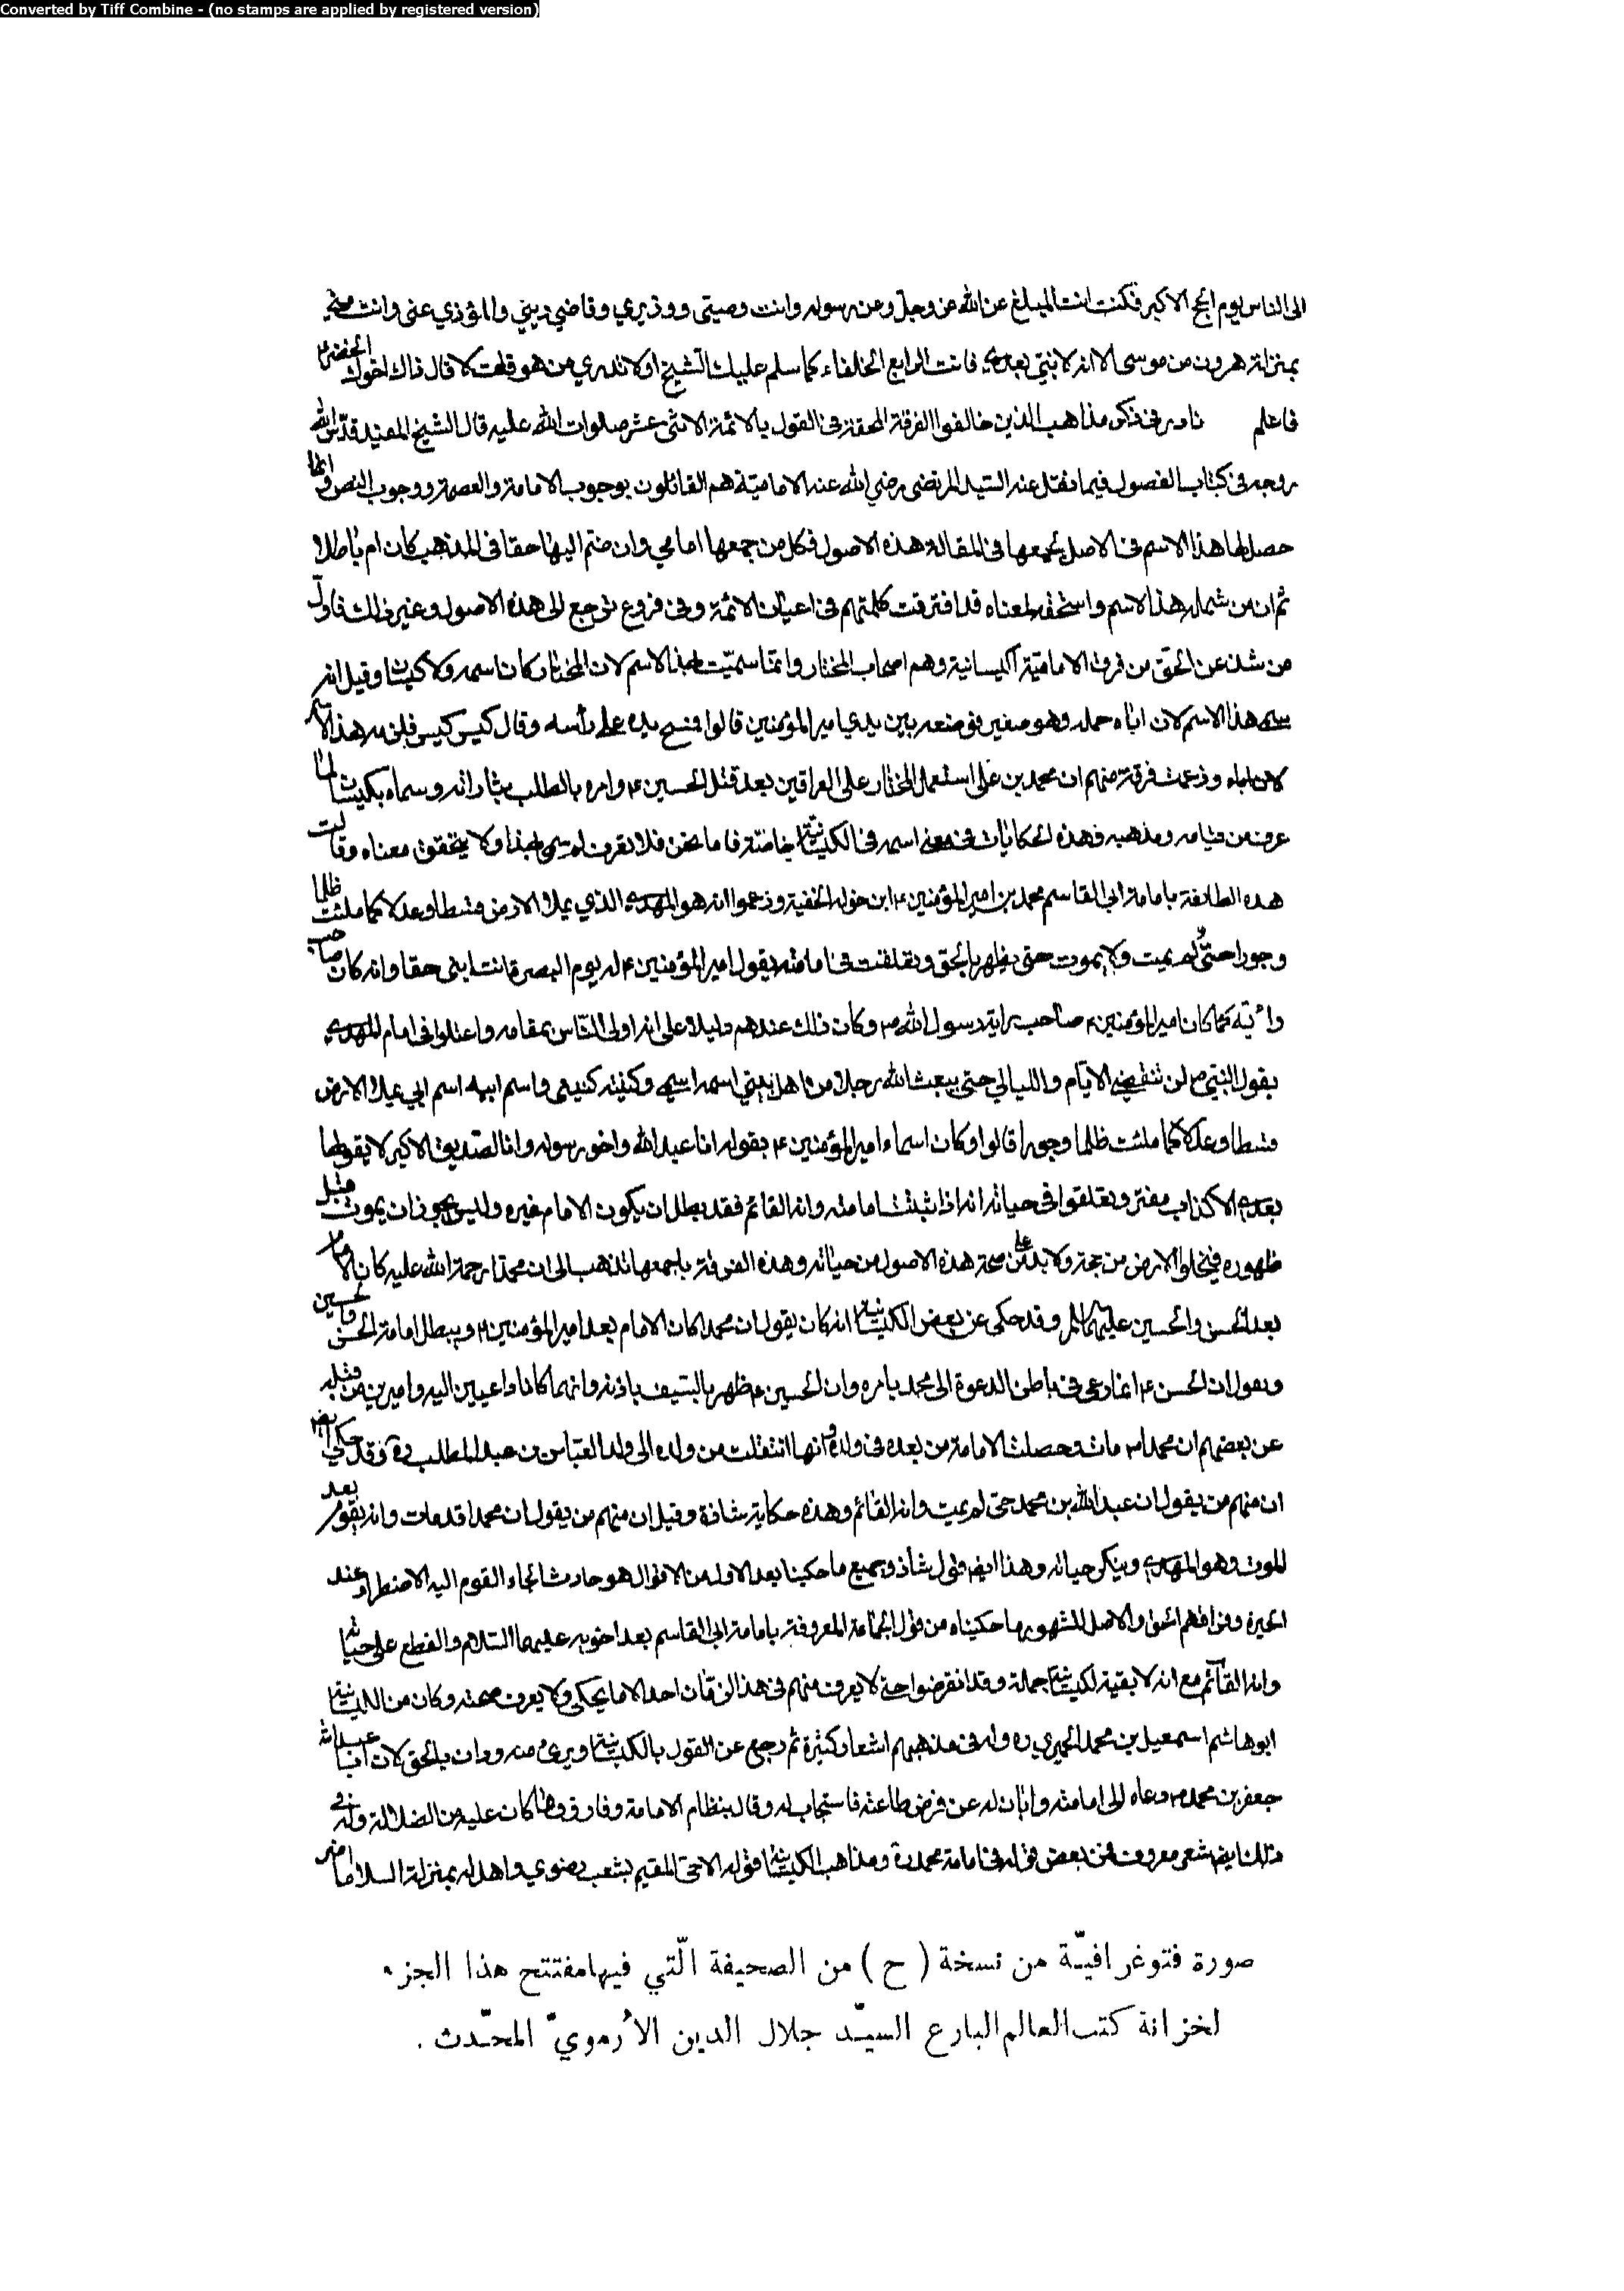 Converted by Tiff Combine - (no stamps are applied by registered version)
الى الناس يوم الحج الاكبر فكنت انت المبلغ عن الله عز وجل وعن رسوله وانت وصيتى ووزيري وقاضي ديني والمؤدي عنى وانت منى
بمنزلة هرون من موسى الا انه لا نبتي بعدي فانت الرابع الخلفاء كما سلم عليك الشيخ اولا تدري من هو قلت لا قال ذاك اخوك الخضر ع
فاعلم نادر في ذكر مذاهب الذين خالفوا الفرقة المحقة في القول بالائمة الاثنى عشر صلوات الله عليه قال الشيخ المفيد قدس الله
روحه في كتاب الفصول فيما نقل عنه السيد المرتضى رضي الله عنه الامامية هم القائلون بوجوب الامامة والعصمة ووجوب النص وانما
حصل لها هذا الاسم في الاصل لجمعها في المقالة هذه الاصول فكل من جمعها امامي وان ضم اليها حقا في المذهب كان ام باطلا
ثم ان من شمله هذا الاسم واستحقه لمعناه قد افترقت كلمتهم في اعيان الائمة وفي فروع ترجع الى هذه الاصول وغير ذلك فاول
من شذ عن الحق من فرق الامامية الكيسانية وهم اصحاب المختار وانما سميت بهذا الاسم لان المختار كان اسمه ولا كيسان وقيل انه
سمى هذا الاسم لان اباه حمله وهو صغير فوضعه بين يدي امير المؤمنين قالوا فمسح يده على رأسه وقال كيس كيس فلزمه هذا الاسم
وزعمت فرقة منهم ان محمد بن على استعمل المختار على العراقين بعد قتل الحسين ع وامره بالطلب بثاراته وسماه بكيسان لما
عرف من قيامه ومذهبه فهذه الحكايات في معنى اسمه في الكيسانية خاصة فاما نحن فلا نعرف له سمى بهذا ولا يتحقق معناه وقالت
هذه الطائفة بامامة ابى القاسم محمد بن امير المؤمنين ع ابن خولة الحنفية وزعموا انه هو المهدي الذي يملا الارض قسطا وعدلا كما ملئت ظلما
وجورا حتى لم يمت ولا يموت حتى يظهر بالحق وتعلقت في امامته بقول امير المؤمنين ع له يوم البصرة انت ابنى حقا وانه كان صاحب
رايته كما كان امير المؤمنين ع صاحب راية رسول الله ص وكان ذلك عندهم دليلا على انه اولى الناس بمقامه واعتلوا في امام المهدي
بقول النبي ص لن تنقضى الايام والليالي حتى يبعث الله رجلا من اهل بيتي اسمه اسمى وكنيته كنيتى واسم ابيه اسم ابي يملا الارض
قسطا وعدلا كما ملئت ظلما وجورا قالوا وكان اسماء امير المؤمنين ع بقوله انا عبد الله واخو رسوله وانا الصديق الاكبر لا يقولها
بعدي الا كذاب مفتر وتعلقوا في حياته انه اذا ثبتت امامته وانه القائم فقد بطل ان يكون الامام غيره وليس يجوز ان يموت قبل
ظهوره فيخلوا الارض من حجة ولا بد على صحة هذه الاصول من حياته وهذه الفرقة باجمعها تذهب الى ان محمدا رحمة الله عليه كان الامام
بعد الحسن والحسين عليهما السلام وقد حكى عن بعض الكيسانية انه كان يقول ان محمدا كان الامام بعد امير المؤمنين ع ويبطل امامة الحسن والحسين
ويقول ان الحسن ع انما دعى في باطن الدعوة الى محمد بامره وان الحسين ع ظهر بالسيف باذنه وانهما كانا داعيين اليه واميرين من قبله
عن بعضهم ان محمدا مات وحصلت الامامة من بعده في ولده وانها انتقلت من ولده الى ولد العباس بن عبد المطلب وقد حكى
ان منهم من يقول ان عبد الله بن محمد حي لم يمت وانه القائم وهذه حكاية شاذة وقيل ان منهم من يقول ان محمدا قد مات وانه يقوم بعد
الموت وهو المهدي وينكر حياته وهذا ايضا قول شاذ وجميع ما حكينا بعد الاول من الاقوال هو حادث الجاء القوم اليه الاضطرار عند
الحيرة وفراقهم الحق والاصل المشهور ما حكيناه من قول الجماعة المعروفة بامامة ابى القاسم بعد اخويه عليهما السلام والقطع على حياته
وانه القائم مع انه لا بقية للكيسانية جملة وقد انقرضوا حتى لا يعرف منهم في هذا الزمان احد الا ما يحكى ولا يعرف صحته وكان من الكيسانية
ابو هاشم اسمعيل بن محمد الحميري ره وله في مذهبهم اشعار كثيرة ثم رجع عن القول بالكيسانية وبرئ منه ودان بالحق لان ابا عبد الله
جعفر بن محمد ع دعاه الى امامته وابان له عن فرض طاعته فاستجاب له وقال بنظام الامامة وفارق ما كان عليه من الضلالة وله في
ذلك ايضا شعر معروف فمن بعض قوله في امامة محمد ره ومذاهب الكيسانية قوله الاحى المقيم بشعب رضوي واهد له بمنزلة السلاما
صورة فتوغرافيّة من نسخة ( ح ) من الصحيفة الّتي فيها مفتتح هذا الجزء
لخزانة كتب العالم البارع السيّد جلال الدين الأرمويّ المحّدث .